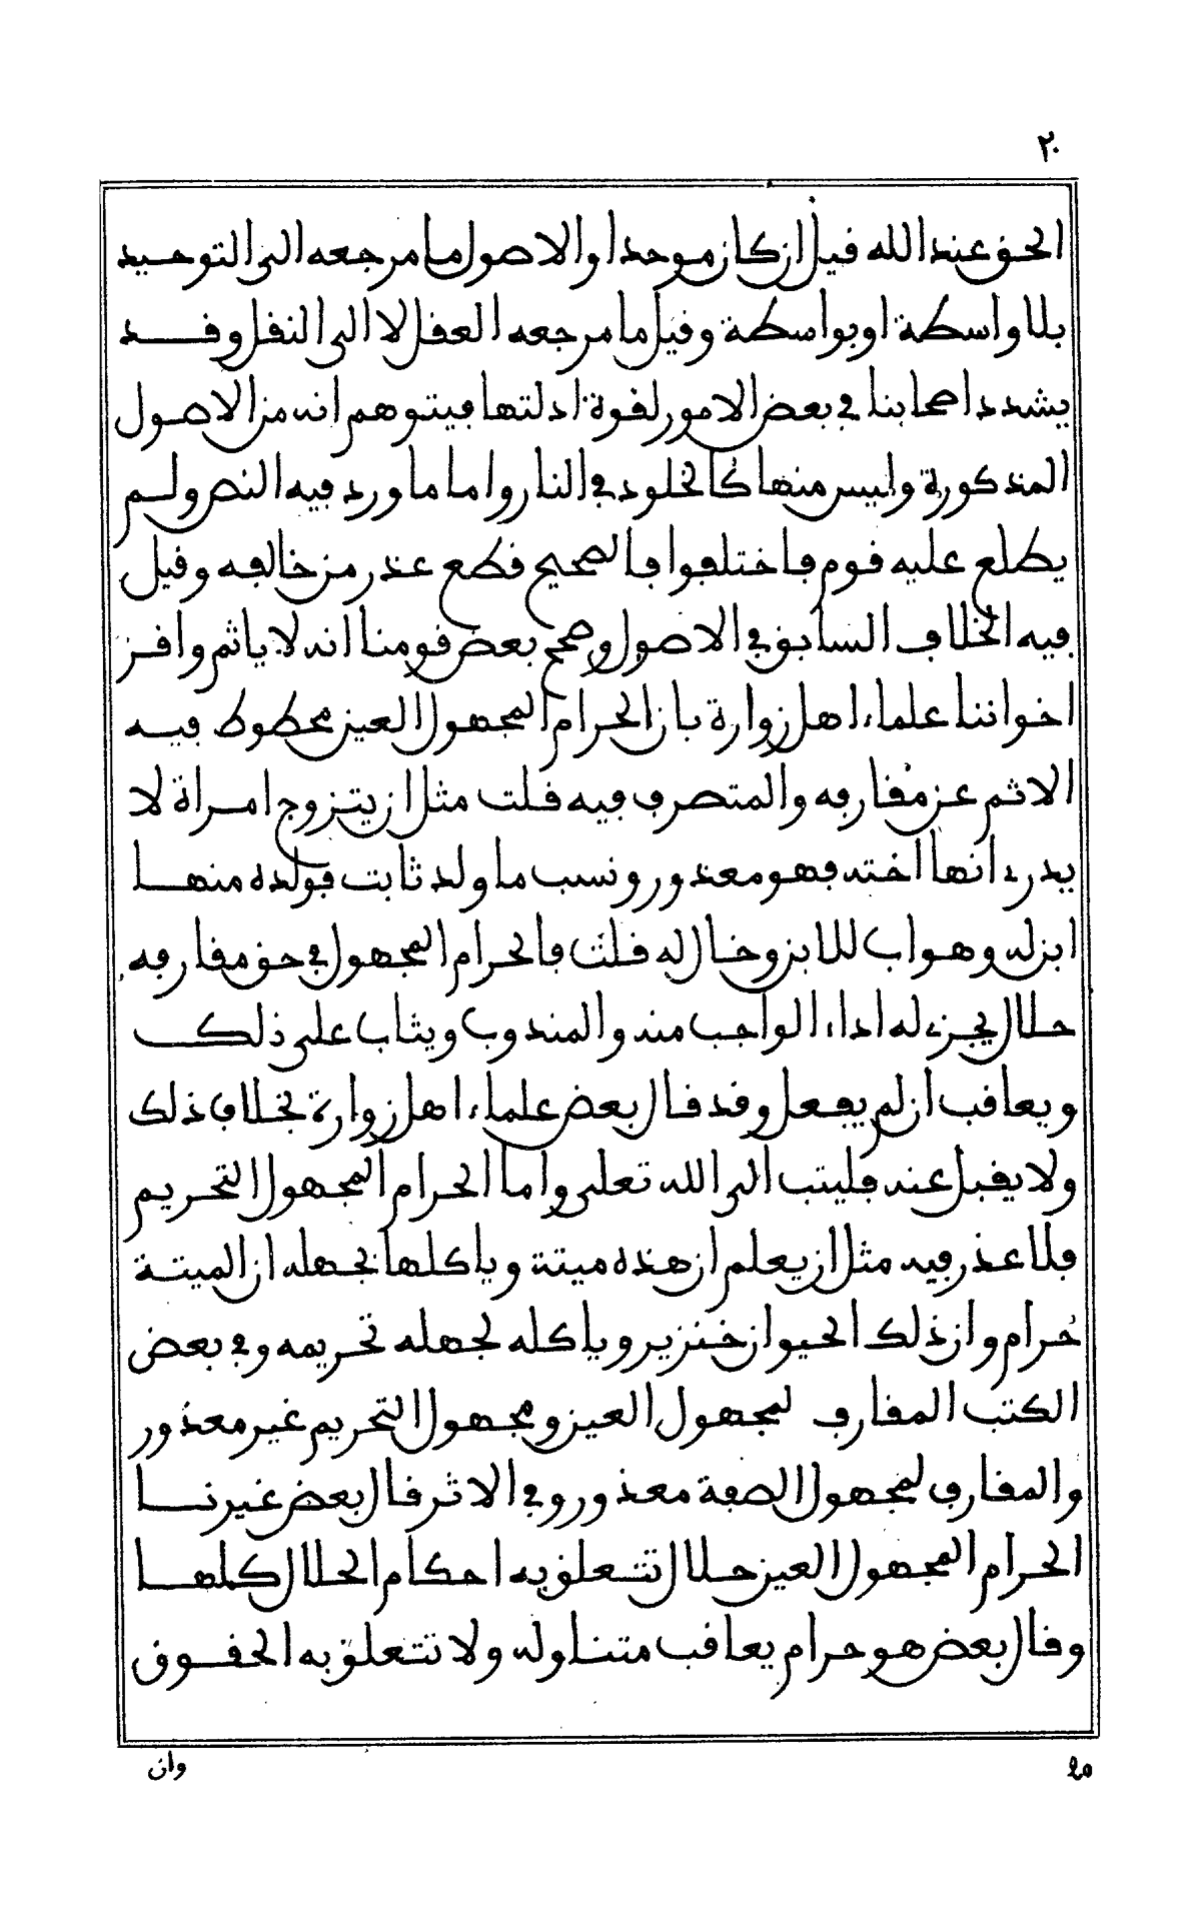 ٢٠
الحق عند الله قيل ان كان موحدا والاصول ما مرجعه الى التوحيد
بلا واسطة او بواسطة وقيل ما مرجعه العقل لا الى النقل وقد
يشدد اصحابنا في بعض الامور لقوة ادلتها فيتوهم انه من الاصول
المذكورة وليس منها كالخلود في النار واما ما ورد فيه النص ولم
يطلع عليه قوم فاختلفوا فالصحيح قطع عذر من خالفه وقيل
فيه الخلاف السابق في الاصول وصحح بعض قومنا انه لا ياثم واقر
اخواننا علماء اهل زوارة بان الحرام المجهول العين محطوط فيه
الاثم عن مقارفه والمتصرف فيه قلت مثل ان يتزوج امراة لا
يدرى انها اخته فهو معذور ونسب ما ولد ثابت فولده منها
ابن له وهو اب للابن وخال له قلت فالحرام المجهول في حق مقارفه
حلال يجزى له اداء الواجب منه والمندوب ويثاب على ذلك
ويعاقب ان لم يفعل وقد قال بعض علماء اهل زوارة بخلاف ذلك
ولا يقبل عنه فليتب الى الله تعلى واما الحرام المجهول التحريم
فلا عذر فيه مثل ان يعلم ان هذه ميتة وياكلها بجهله ان الميتة
حرام وان ذلك الحيوان خنزير وياكله لجهله تحريمه وفي بعض
الكتب المقارف لمجهول العين ومجهول التحريم غير معذور
والمقارف لمجهول الصفة معذور وفي الاثر قال بعض غيرنا
الحرام المجهول العين حلال تتعلق به احكام الحلال كلها
وقال بعض هو حرام يعاقب متناوله ولا تتعلق به الحقوق
وان